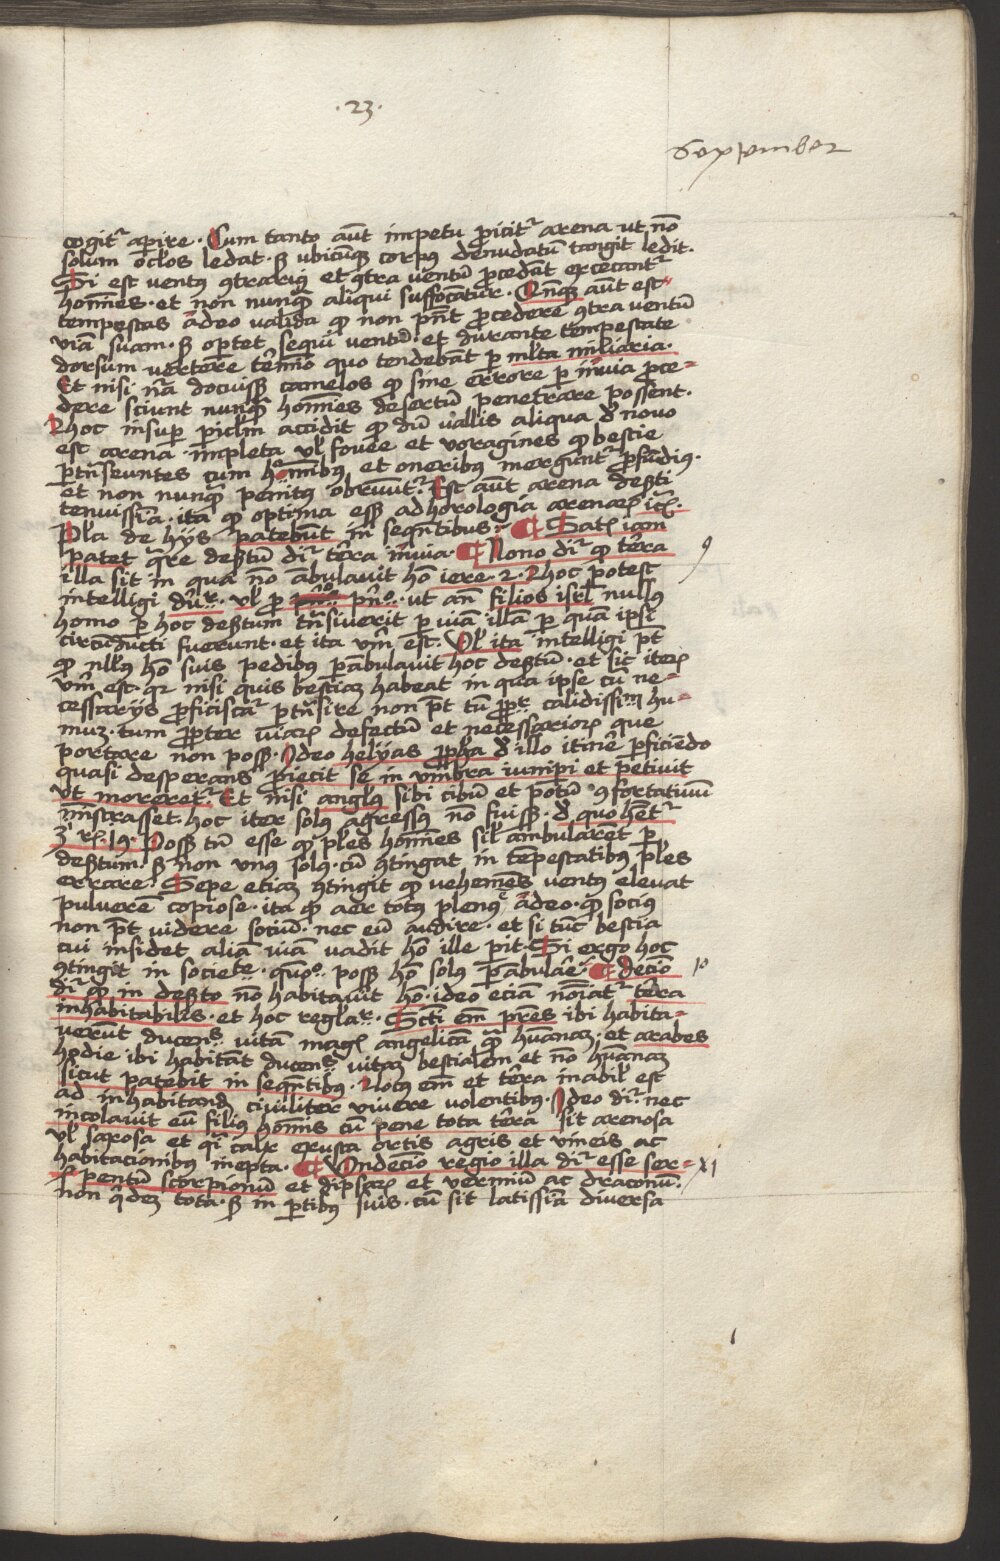 ·23·
September
cogit᷑ aꝑire · Cum tanto aūt impetu ꝓicit᷑ arena ut nō
solum oc̄los ledat · sꝫ ubicūqꝫ corpꝰ denudatū tangit ledit.
Si est ventꝰ ꝯtrariꝰ et ꝯtra ventū ꝓcedāt excecant᷑
hom̄īes · et non nunqꝫ̄ aliqui suffocāt᷑ur · Qn̄qꝫ aūt est
tempestas ādeo valida ꝙ non pn̄t ꝓcedere ꝯtra ventū
viā suam · sꝫ oꝑtet sequi ventū · et durante tēmpestate
dorsum vertere tērmīo quo tendebāt ꝑ ml̄ta miliaria ·
Et nisi nr̄a docuissꝫ camelos ꝙ sine errore ꝑ īnvia ꝓce=
dere sciunt nunqꝫ̄ hom̄īes desertū penetrare possent.
Pͭ hoc insuꝑ ꝑicl̄m accidit ꝙ dū vallis aliqua d̄ novo
est arena impleta vl̓ fovee et voragines ꝙ bestie
ꝑtn̄seuntes cum hom̄ībꝰ et oneribꝰ mergūnt᷑ ꝓfūdiꝰ ·
et non nunqꝫ̄ penitꝰ obruūt᷑ Est aūt arena des̄ti
tenuissīa · ita ꝙ optima essꝫ ad horologia arenaꝝ
Pl̄a de hÿs patebūt in seqn̄tibus · ¶ Satꝭ iam
patet qͣre des̄tū dī᷑ tēra īnvia · ¶ Nono dī᷑ ꝙ tēra
9
illa sit in qua nō ābulavit hō iere · 2 · Pͭ hoc potest
intelligi · vl̓ ꝓ pn̄ͦ · ut an̄ filios isrl̄ nullꝰ
homo ꝑ hoc des̄tum tn̄siverit ꝑ viā illā ꝑ quā ipsi
circūducti fuerunt · et ita vm̄ est · Vl̓ ita intelligi pt̄
ꝙ nll̄ꝰ hō suis pedibꝰ ꝑābulavit hoc des̄tū · et sic iteꝝ
vm̄ est · qꝛ nisi quis bestiaꝫ habeat in qua ipse cū ne=
cessarÿs ꝓficiscat᷑ ꝑtn̄sire non pt̄ tū ꝓpt̄ calidissīm hu=
muꝫ · tum ꝓpter viaꝝ defectū et necessarioꝝ que
portare non possꝫ · Ideo helÿas ꝓpħa d̄ illo itinē ꝓficiēdo
quasi desperans ꝓiecit se in vmbra iuniꝑi et petivit
vt moreret᷑ Et nisi anglꝰ̄ sibi cibū et potū ꝯfortativū
mīstrasset · hoc iter solꝰ agressꝰ nō fuissꝫ · d̄ quo hēt᷑
3 rꝭ · 19 · Possꝫ tn̄ esse ꝙ pl̄es hom̄īes sil̄ ambularēt ꝑ
des̄tum · sꝫ non vnꝰ solꝰ · cū ꝯtingat in tēmpestatibꝰ pl̄es
errare · Sepe etiaꝫ ꝯtingit ꝙ vehemēs ventꝰ elevat
pulverē copiose · ita ꝙ aer totꝰ plenꝰ ādeo · ꝙ sociꝰ
non pt̄ videre sociū · nec eū audire · et si tūc bestia
cui insidet aliā viā vadit hō ille ꝑit · Si ergo hoc
ꝯtingit in societe · quōͦ · possꝫ hō solꝰ ꝑābulare · ¶ Decīo
10
dī᷑ ꝙ in des̄to nō habitavit hō · ideo eciā noīat᷑ tēra
inhabitabilꝭ · et hoc · Scti em̄ pr̄es ibi habita=
verūt ducen̄s vitā magꝭ angelicā qꝫ̄ hūanaꝫ · et arabes
hodie ibi habitāt ducen̄s vitaꝫ bestialem et nō hūanaꝫ
sicut patebit in seqn̄tibꝰ · Locꝰ em̄ et tēra inabil̓ est
ad inhabitandꝫ civiliter vivere volentibꝰ · Ideo dī᷑ nec
incolavit eū filiꝰ homīs cū pene tota tēra sit arenosa
vl̓ saxosa et qͣi calx exusta ortis agris et vineis ac
habitacionibꝰ inepta · ¶ Vndecīo regio illa dī᷑ esse ser=
xi
pentū scorpionū et dipsaꝝ et vermiū ac draconū.
non qͥdeꝫ tota · sꝫ in ꝑtibꝰ suis · cū sit latissīa diversa